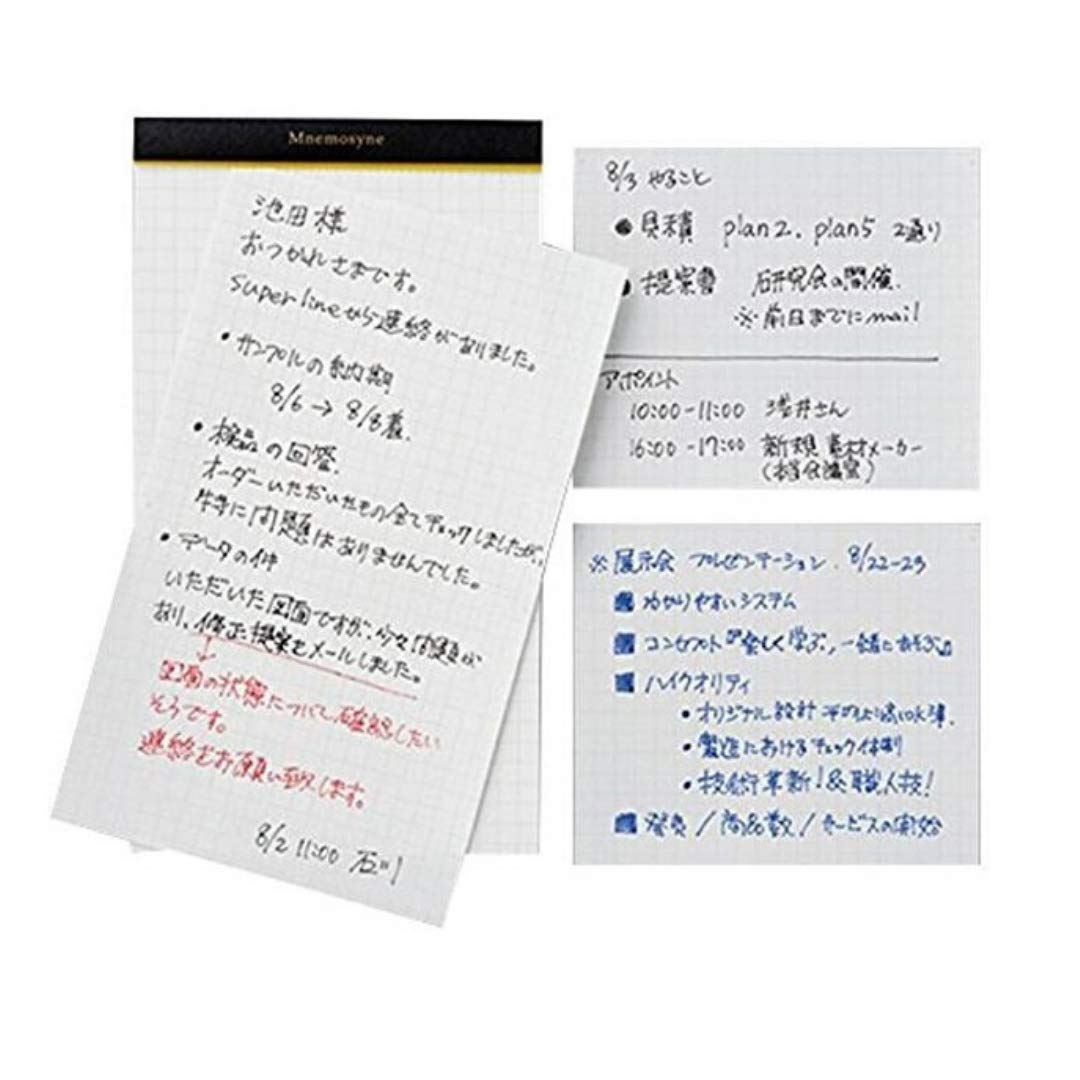 Mnemosyne
池田様
おつかれさまです。
super lineから連絡がありました。
• サンプルの納期
8/6 → 8/8着.
• 検品の回答.
オーダーいただいたもの全てチェックしましたが、
特に問題はありませんでした。
• データの件
いただいた図面ですが、少々問題が
あり、修正提案をメールしました。
図面の状態について確認したい
そうです。
連絡をお願い致します。
8/2 11:00 石川
8/3 やること
● 見積 plan2. plan5 2通り
● 提案書 研究会の開催.
※前日までにmail
アポイント
10:00-11:00 浅井さん
16:00-17:00 新規素材メーカー
(本社会議室)
※展示会 プレゼンテーション. 8/22-23
■ わかりやすいシステム
■ コンセプト『楽しく学ぶ,一緒にあそぶ』
■ ハイクオリティ
• オリジナル設計
• 製造におけるチェック体制
• 技術革新!&職人技!
■ 発売/商品数/サービスの開始